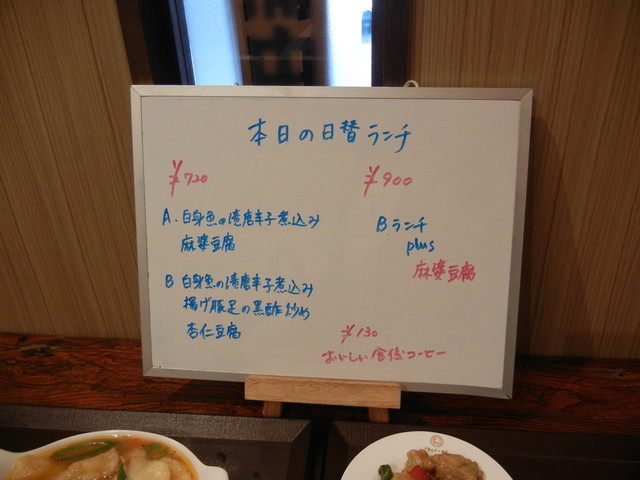 本日の日替ランチ
¥720
A. 白身魚の唐辛子煮込み
麻婆豆腐
B 白身魚の唐辛子煮込み
揚げ豚足の黒酢炒め
杏仁豆腐
¥900
Bランチ
plus
麻婆豆腐
¥130
おいしい食後コーヒー